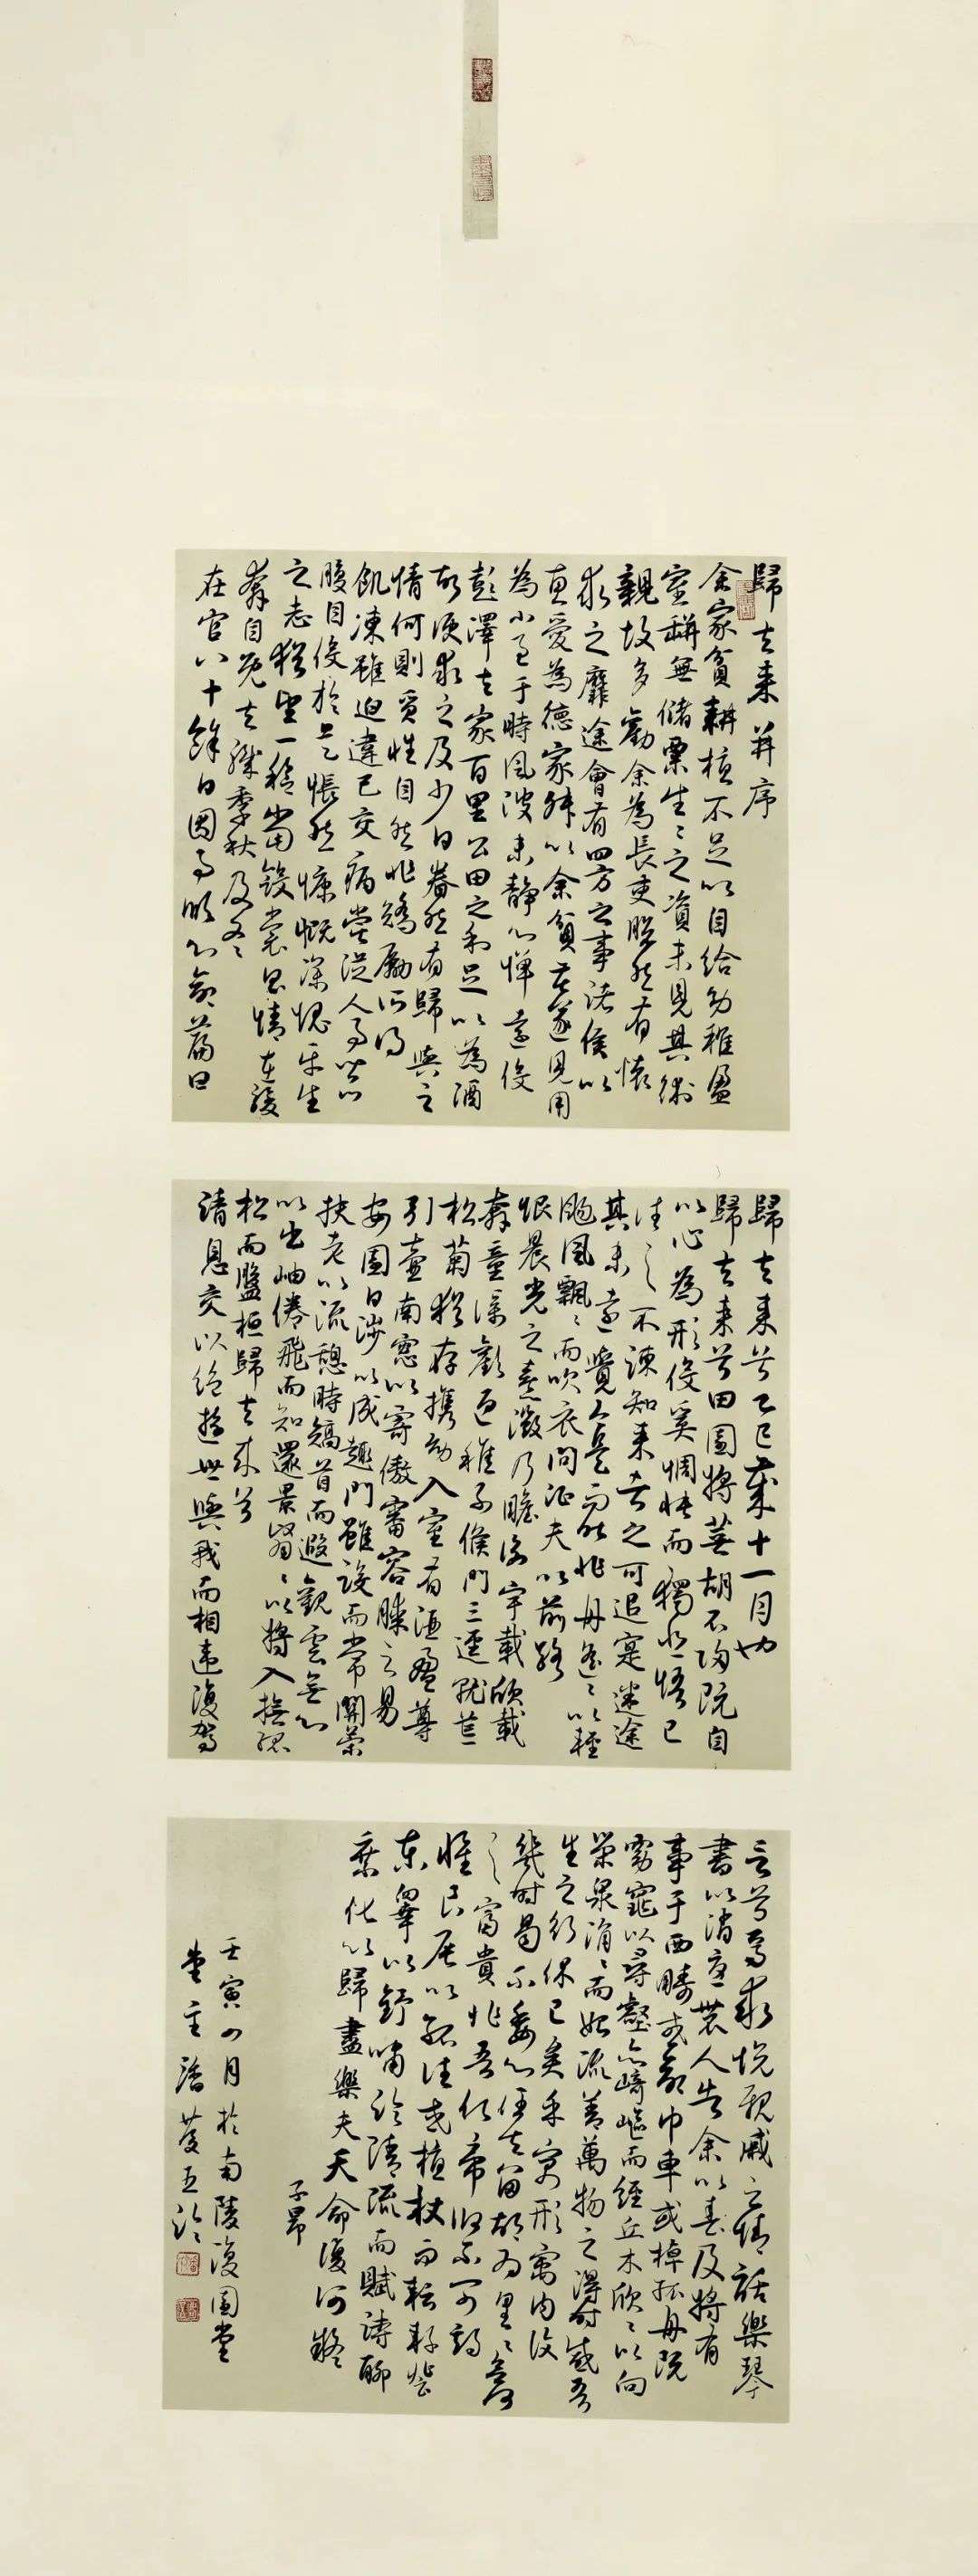 歸去来并序
余家貧耕植不足以自給幼稚盈
室缾無儲粟生〻之資未見其術
親故多勸余為長吏脫然有懷
求之靡途會有四方之事諸侯以
惠愛為德家叔以余貧苦遂見用
為小邑于時風波未靜心憚遠役
彭澤去家百里公田之利足以為酒
故便求之及少日眷然有歸與之
情何則質性自然非矯勵所得
飢凍雖迫違己交病嘗從人事皆口
腹自役於是悵然慷慨深愧平生
之志猶望一稔當斂裳宵逝情在駿
奔自免去職季秋及冬
在官八十餘日因事順心命篇曰
歸去来兮乙巳歲十一月也
歸去来兮田園將蕪胡不歸既自
以心為形役奚惆悵而獨悲悟已
往之不諫知来者之可追寔迷途
其未遠覺今是而昨非舟遙〻以輕
颺風飄〻而吹衣問征夫以前路
恨晨光之熹微乃瞻衡宇載欣載
奔童僕歡迎稚子候門三逕就荒
松菊猶存攜幼入室有酒盈尊
引壺南窗以寄傲審容膝之易
安園日涉以成趣門雖設而常關策
扶老以流憩時矯首而遐觀雲無心
以出岫倦飛而知還景翳〻以將入撫孤
松而盤桓歸去来兮
請息交以絕遊世與我而相違復駕
言兮焉求悅親戚之情話樂琴
書以消憂農人告余以春及將有
事于西疇或命巾車或棹孤舟既
窈窕以尋壑亦崎嶇而經丘木欣〻以向
榮泉涓〻而始流善萬物之得時感吾
生之行休已矣乎寓形宇内復
幾時曷不委心任去留胡為遑〻欲何
之富貴非吾願帝鄉不可期
懷良辰以孤往或植杖而耘耔登
東皋以舒嘯臨清流而賦詩聊
乘化以歸盡樂夫天命復何疑
子昂
壬寅四月於南陵復園堂
堂主潘慶五臨